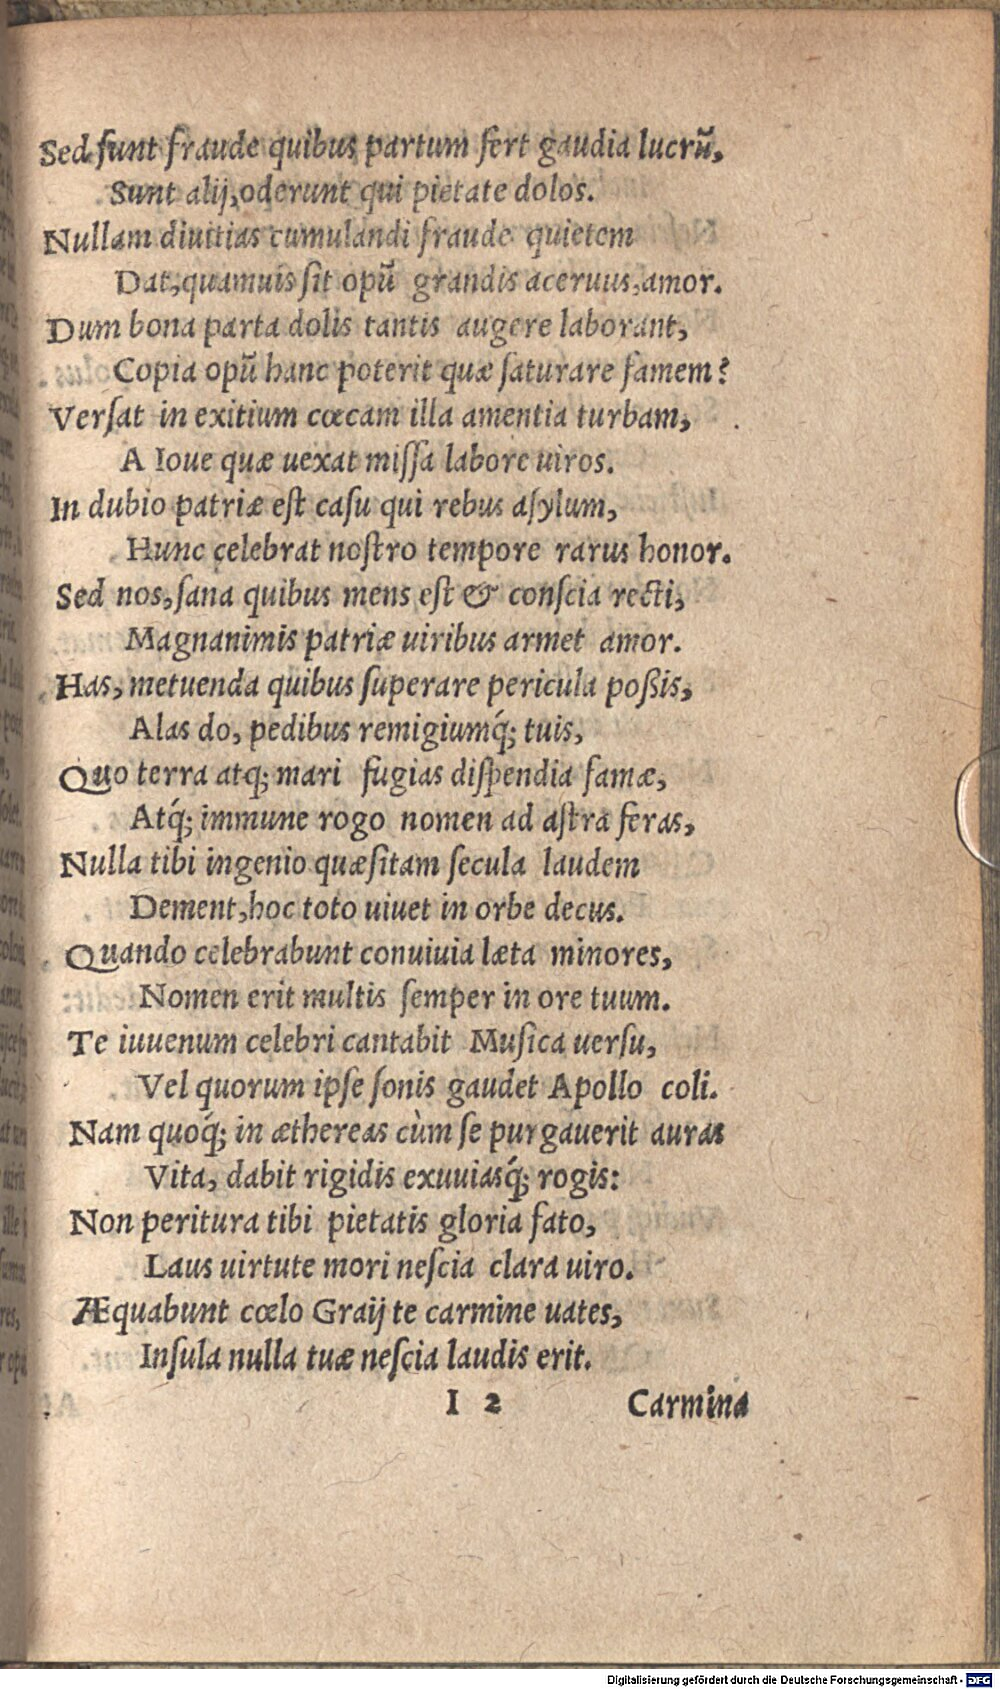 Sed sunt fraude quibus partum fert gaudia lucrū,
Sunt alij, oderunt qui pietate dolos.
Nullam diuitias cumulandi fraude quietem
Dat, quamuis sit opū grandis aceruus, amor.
Dum bona parta dolis tantis augere laborant,
Copia opū hanc poterit quæ saturare famem?
Versat in exitium cœcam illa amentia turbam,
A Ioue quæ uexat missa labore uiros.
In dubio patriæ est casu qui rebus asylum,
Hunc celebrat nostro tempore rarus honor.
Sed nos, sana quibus mens est & conscia recti,
Magnanimis patriæ uiribus armet amor.
Has, metuenda quibus superare pericula poßis,
Alas do, pedibus remigiumq́; tuis,
Quo terra atq; mari fugias dispendia famæ,
Atq́; immune rogo nomen ad astra feras,
Nulla tibi ingenio quæsitam secula laudem
Dement, hoc toto uiuet in orbe decus.
Quando celebrabunt conuiuia læta minores,
Nomen erit multis semper in ore tuum.
Te iuuenum celebri cantabit Musica uersu,
Vel quorum ipse sonis gaudet Apollo coli.
Nam quoq́; in æthereas cùm se purgauerit auras
Vita, dabit rigidis exuuiasq́; rogis:
Non peritura tibi pietatis gloria fato,
Laus uirtute mori nescia clara uiro.
Æquabunt cœlo Graij te carmine uates,
Insula nulla tuæ nescia laudis erit.
I 2 Carmina
Digitalisierung gefördert durch die Deutsche Forschungsgemeinschaft - DFG